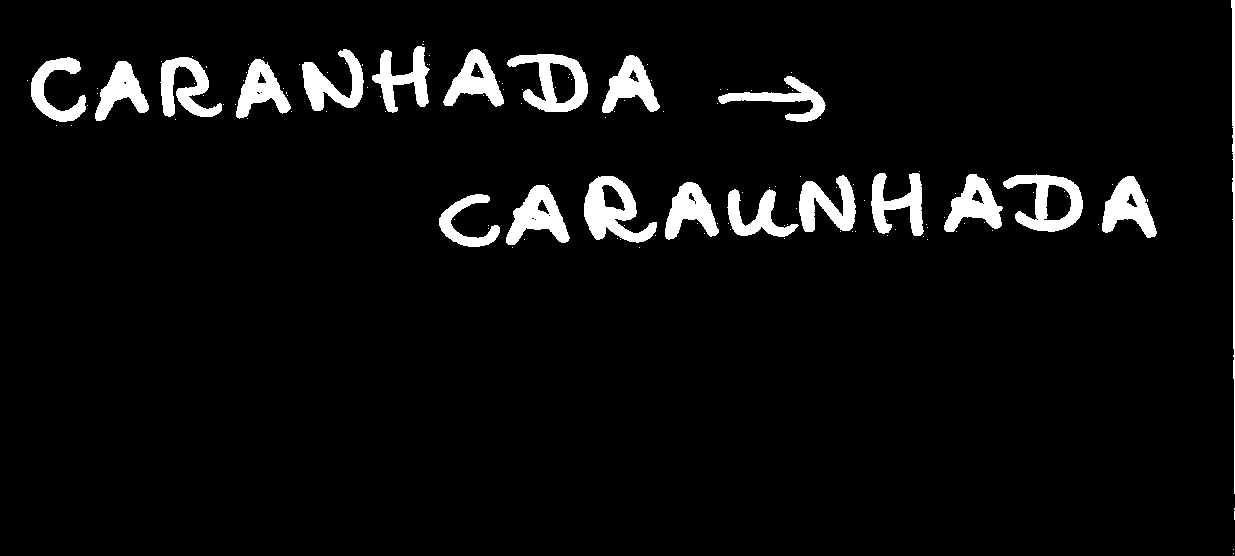 CARANHADA →
CARAUNHADA